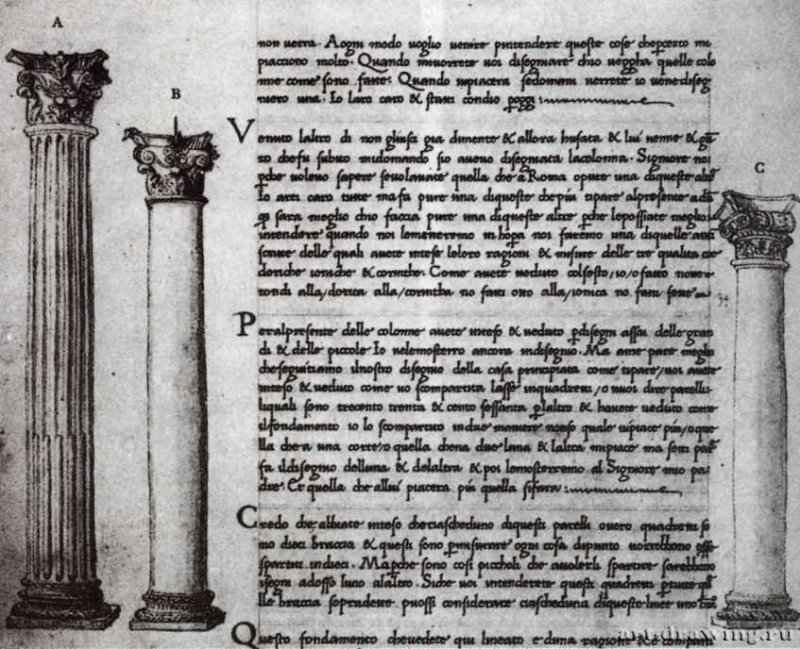 A
B
C
non verra. Aogni modo voglio venire pintendere queste cose cheperto mi
piacciono molto. Quando mivorrete voi disegniare chio vegghia quelle colo
nne come sono fatte. Quando vipiacera sedomani verrete io venediseg
niero una. Io laro caro & statti condio
Venuto laltro di non giunsi gia dinente & allora & lui venne &
to chefu subito midomando sio avevo disegniata lacolonna. Signore noi
volevo sapere sevolavate quella che a Roma opure una diqueste
Io arei caro tutte ma fa pure una diqueste
sara meglio chio faccia pure una diqueste altre lepossiate meglio
intendere quando noi lemeneremo noi faremo una diquelle
delle quali avete inteso leloro ragioni & misure delle tre qualita
doriche ioniche & corinthe. Come avete veduto
tondi alla/dorica alla/corintha no fani otto alla/ionica no fani
34
Peralpresente delle colonne avete inteso & veduto disegni assai delle gran
di & delle piccole Io velemosterro ancora indisegnio. Ma ame pare meglio
cheseguitiamo ilnostro disegno della casa principiata come tipare/voi avete
inteso & veduto come vo scompartita inquadretti/o vuoi dire parelli
liquali sono trecento trenta & cento sessanta laltro & havete veduto come
ilfondamento io lo scompartito indue maniere quale vipiace piu/o que
lla che a una corte/o quella chena due luna & laltra mipiace ma
fa ildisegnio delluna & delaltra & poi lemosterremo al Signore mio pa
dre. Et quella che allui piacera piu quella sifara
Credo che abbiate inteso checiascheduno diquesti parelli overo quadretti so
no dieci braccia & questi sono misurare ogni cosa dipunto vorrebbono esse
spartiti indieci. Maperche sono cosi picholi che avolerli spartire sarebbono
isegni adosso luno alaltro. Siche voi intenderete questi quadretti
lle braccia sopradette puossi considerare ciascheduna diqueste linee uno
Questo fondamento chevedete qui lineato e duna ragione &
artdrawing.ru